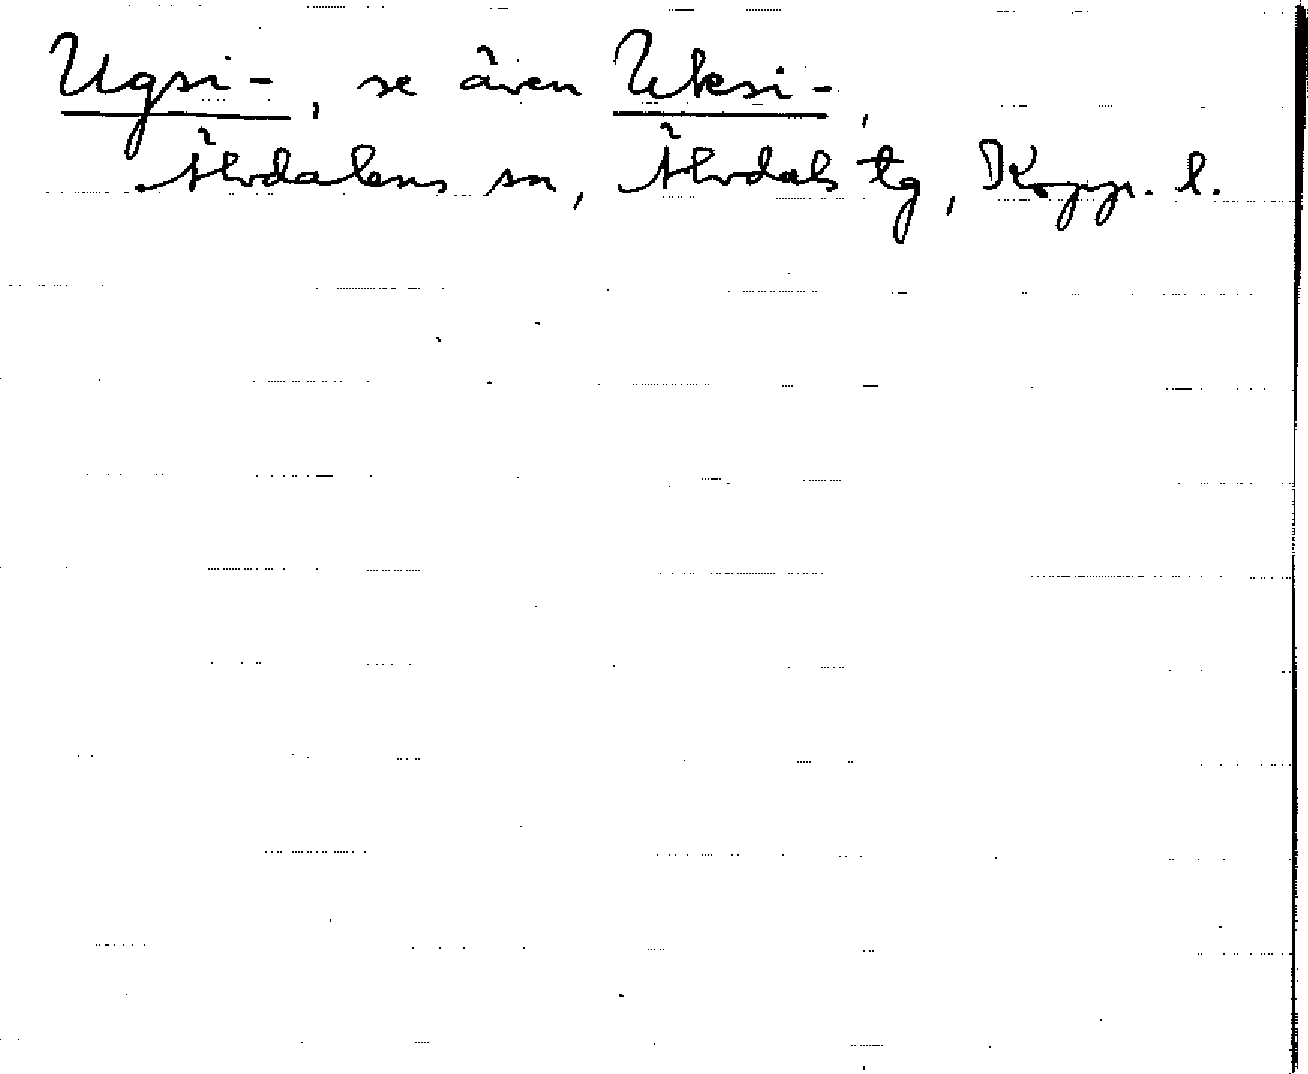 Ugsi-, se även Uksi-,
Älvdalens sn, Älvdals tg, Kopp. l.